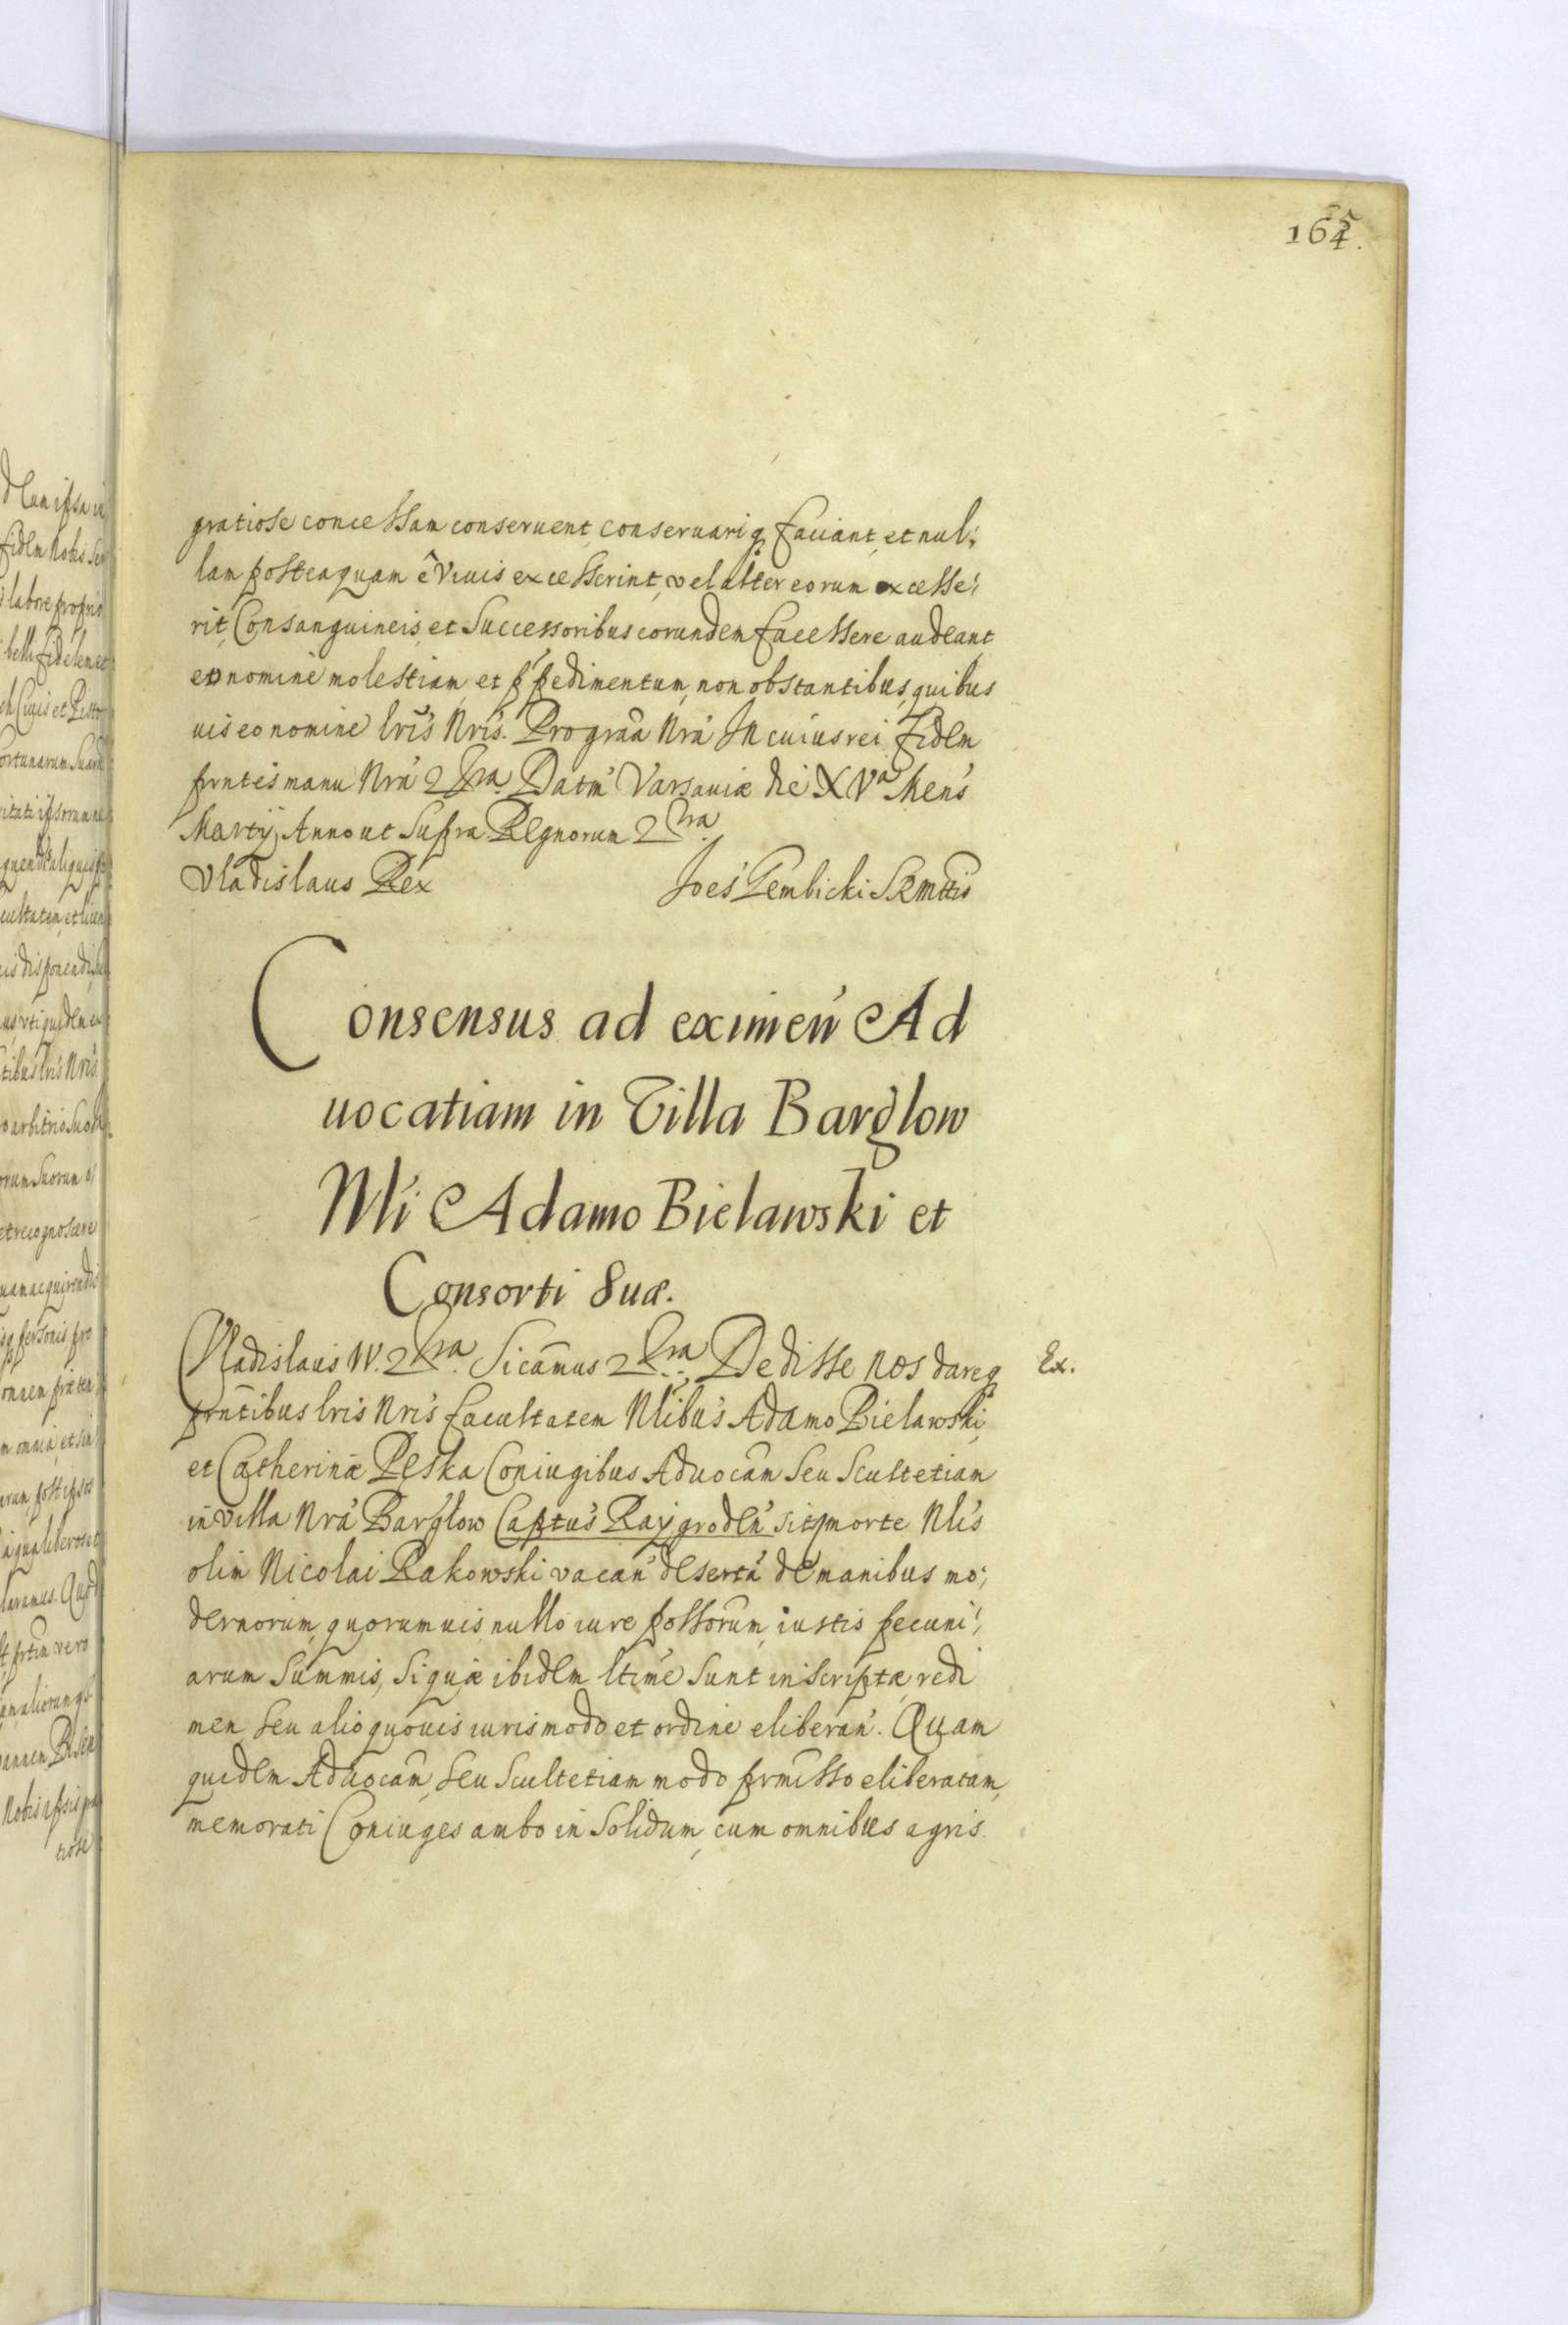 165
164.
gratiose concessam conseruent, conseruariq faciant, et nul:
lam posteaquam ê viuis excesserint, vel alter eorum excesse:
rit, Consanguineis, et Successoribus eorundem facessere audeant
eo nomine molestiam, et ppedimentum, non obstantibus, quibus
uis eo nomine lris Nris. Pro graa Nra In cuius rei fidem
prntes manu Nra 2 hra. Datm Varsauiæ die XVa Mens
Martij, Anno ut Supra Regnorum 2 hra
Vladislaus Rex Joes Gembicki SRmttis
Consensus ad eximen Ad
uocatiam in Villa Barglow
Nli Adamo Bielawski et
Consorti Suæ.
Vladislaus IV. 2 hra. Sicamus 2 hra.; Dedisse nos dareq Ex.
prntibus lris Nris facultatem Nlibus Adamo Bielawski,
et Catherinæ Peska Coniugibus Aduocam Seu Scultetiam
in villa Nra Barglow Captus Raygroden sit, morte Nlis
olim Nicolai Rakowski vacan deserta de manibus mo:
dernorum, quorumuis, nullo iure possorum, iustis pecuni:
arum Summis, Si quæ ibidem ltime Sunt inscriptæ, redi
men, Seu alio quouis iuris modo et ordine eliberan. Quam
quidem Aduocam, Seu Scultetiam modo prmisso eliberatam,
memorati Coniuges ambo in Solidum, cum omnibus agris